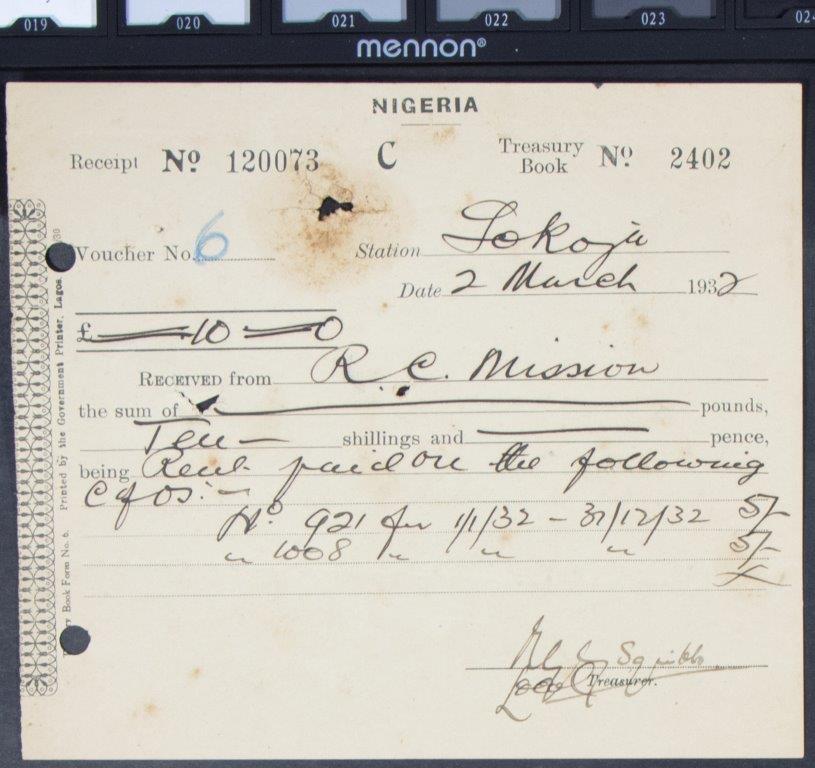 019 020 021 022 023 024
mennon®
NIGERIA
Receipt Nº 120073 C Treasury Book Nº 2402
Voucher No. 6 Station Lokoja
Date 2 March 1932
£ — 10 — 0
RECEIVED from R. C. Mission
the sum of — pounds,
Ten — shillings and — pence,
being Rent paid on the following
C of Os:—
Nº 921 for 1/1/32 – 31/12/32 5/-
" 1008 " " " 5/-
Squibbs
Treasurer.
Treasury Book Form No. 6. Printed by the Government Printer, Lagos